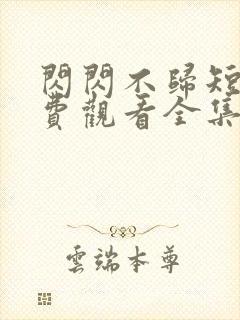 閃閃不歸短
費觀看全集
雲端本尊